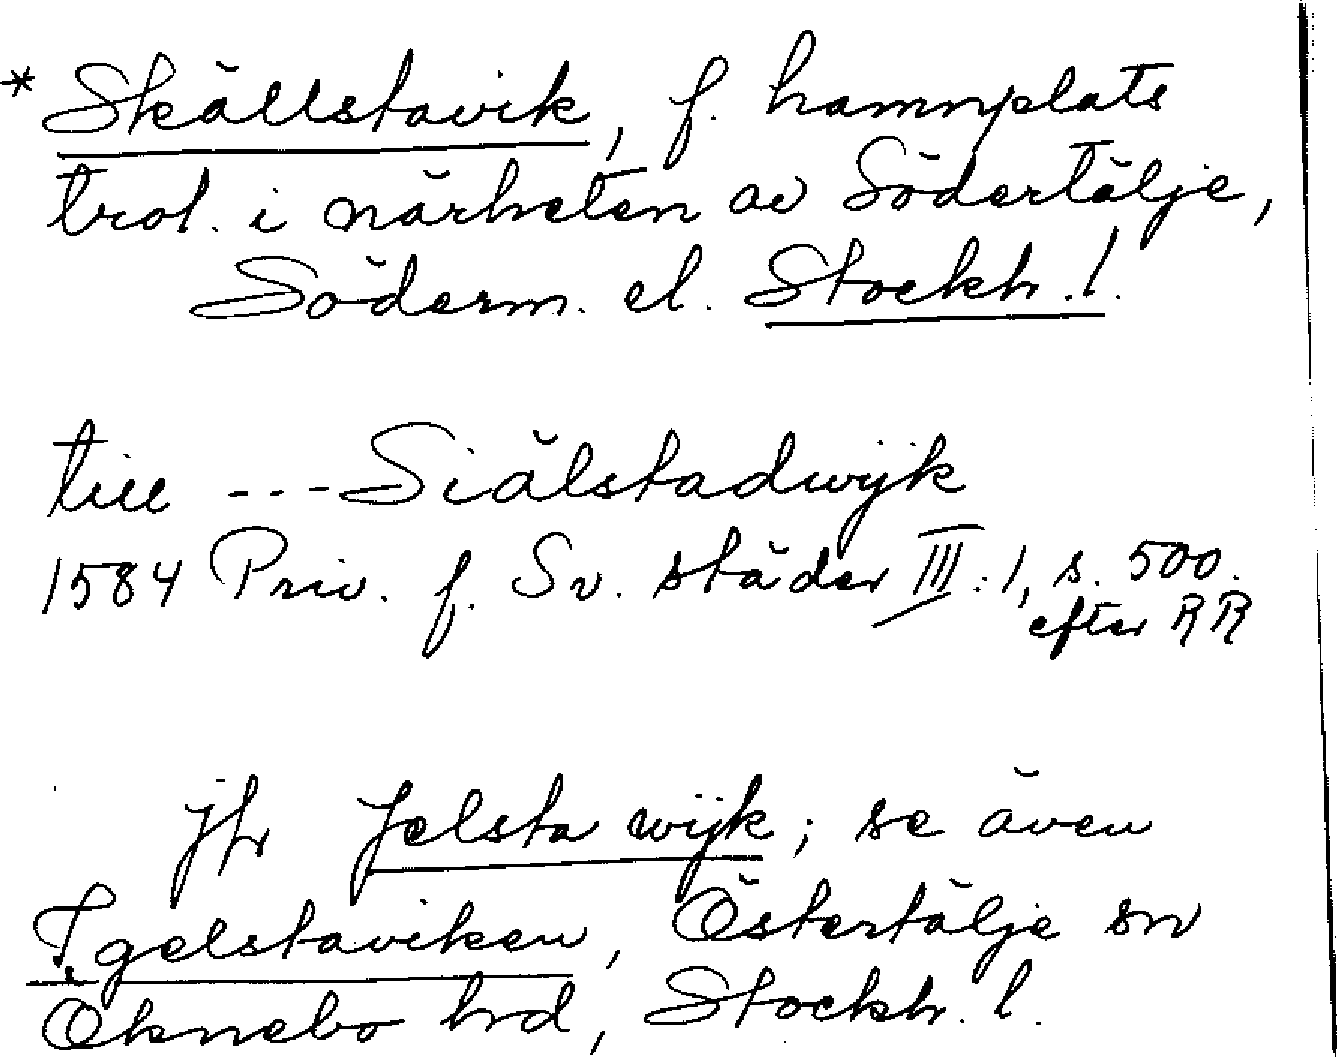 * Skällstavik, f. hamnplats
trol. i närheten av Södertälje,
Söderm. el. Stockh. l.
till --- Siälstadwijk
1584 Priv. f. Sv. städer III:1, s. 500.
efter RR
jfr Jelsta wijk; se även
Igelstaviken, Östertälje sn
Öknebo hrd, Stockh. l.